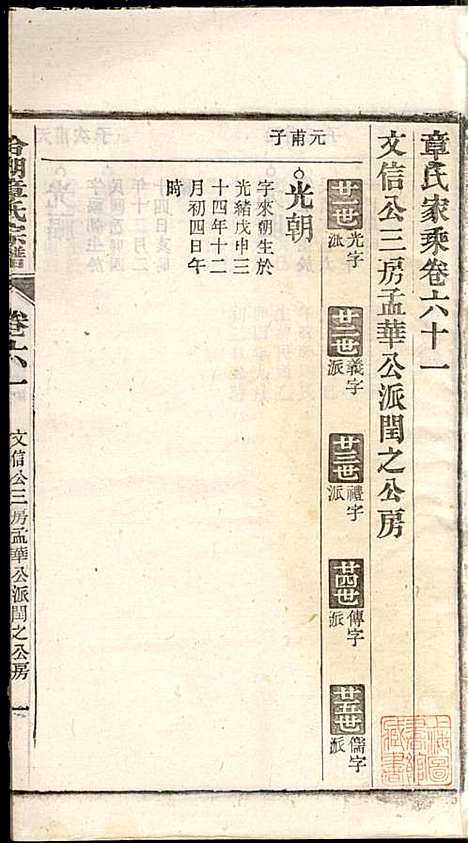 章氏家乘卷六十一
文信公三房孟華公派閏之公房
廿一世 光字派
廿二世 義字派
廿三世 禮字派
廿四世 傳字派
廿五世 儒字派
元甫子
光朝
字來朝生於
光緒戊申三
十四年十二
月初四日午
時
湖章氏宗譜
卷六一
文信公三房孟華公派閏之公房
一
上海圖
書館
藏書